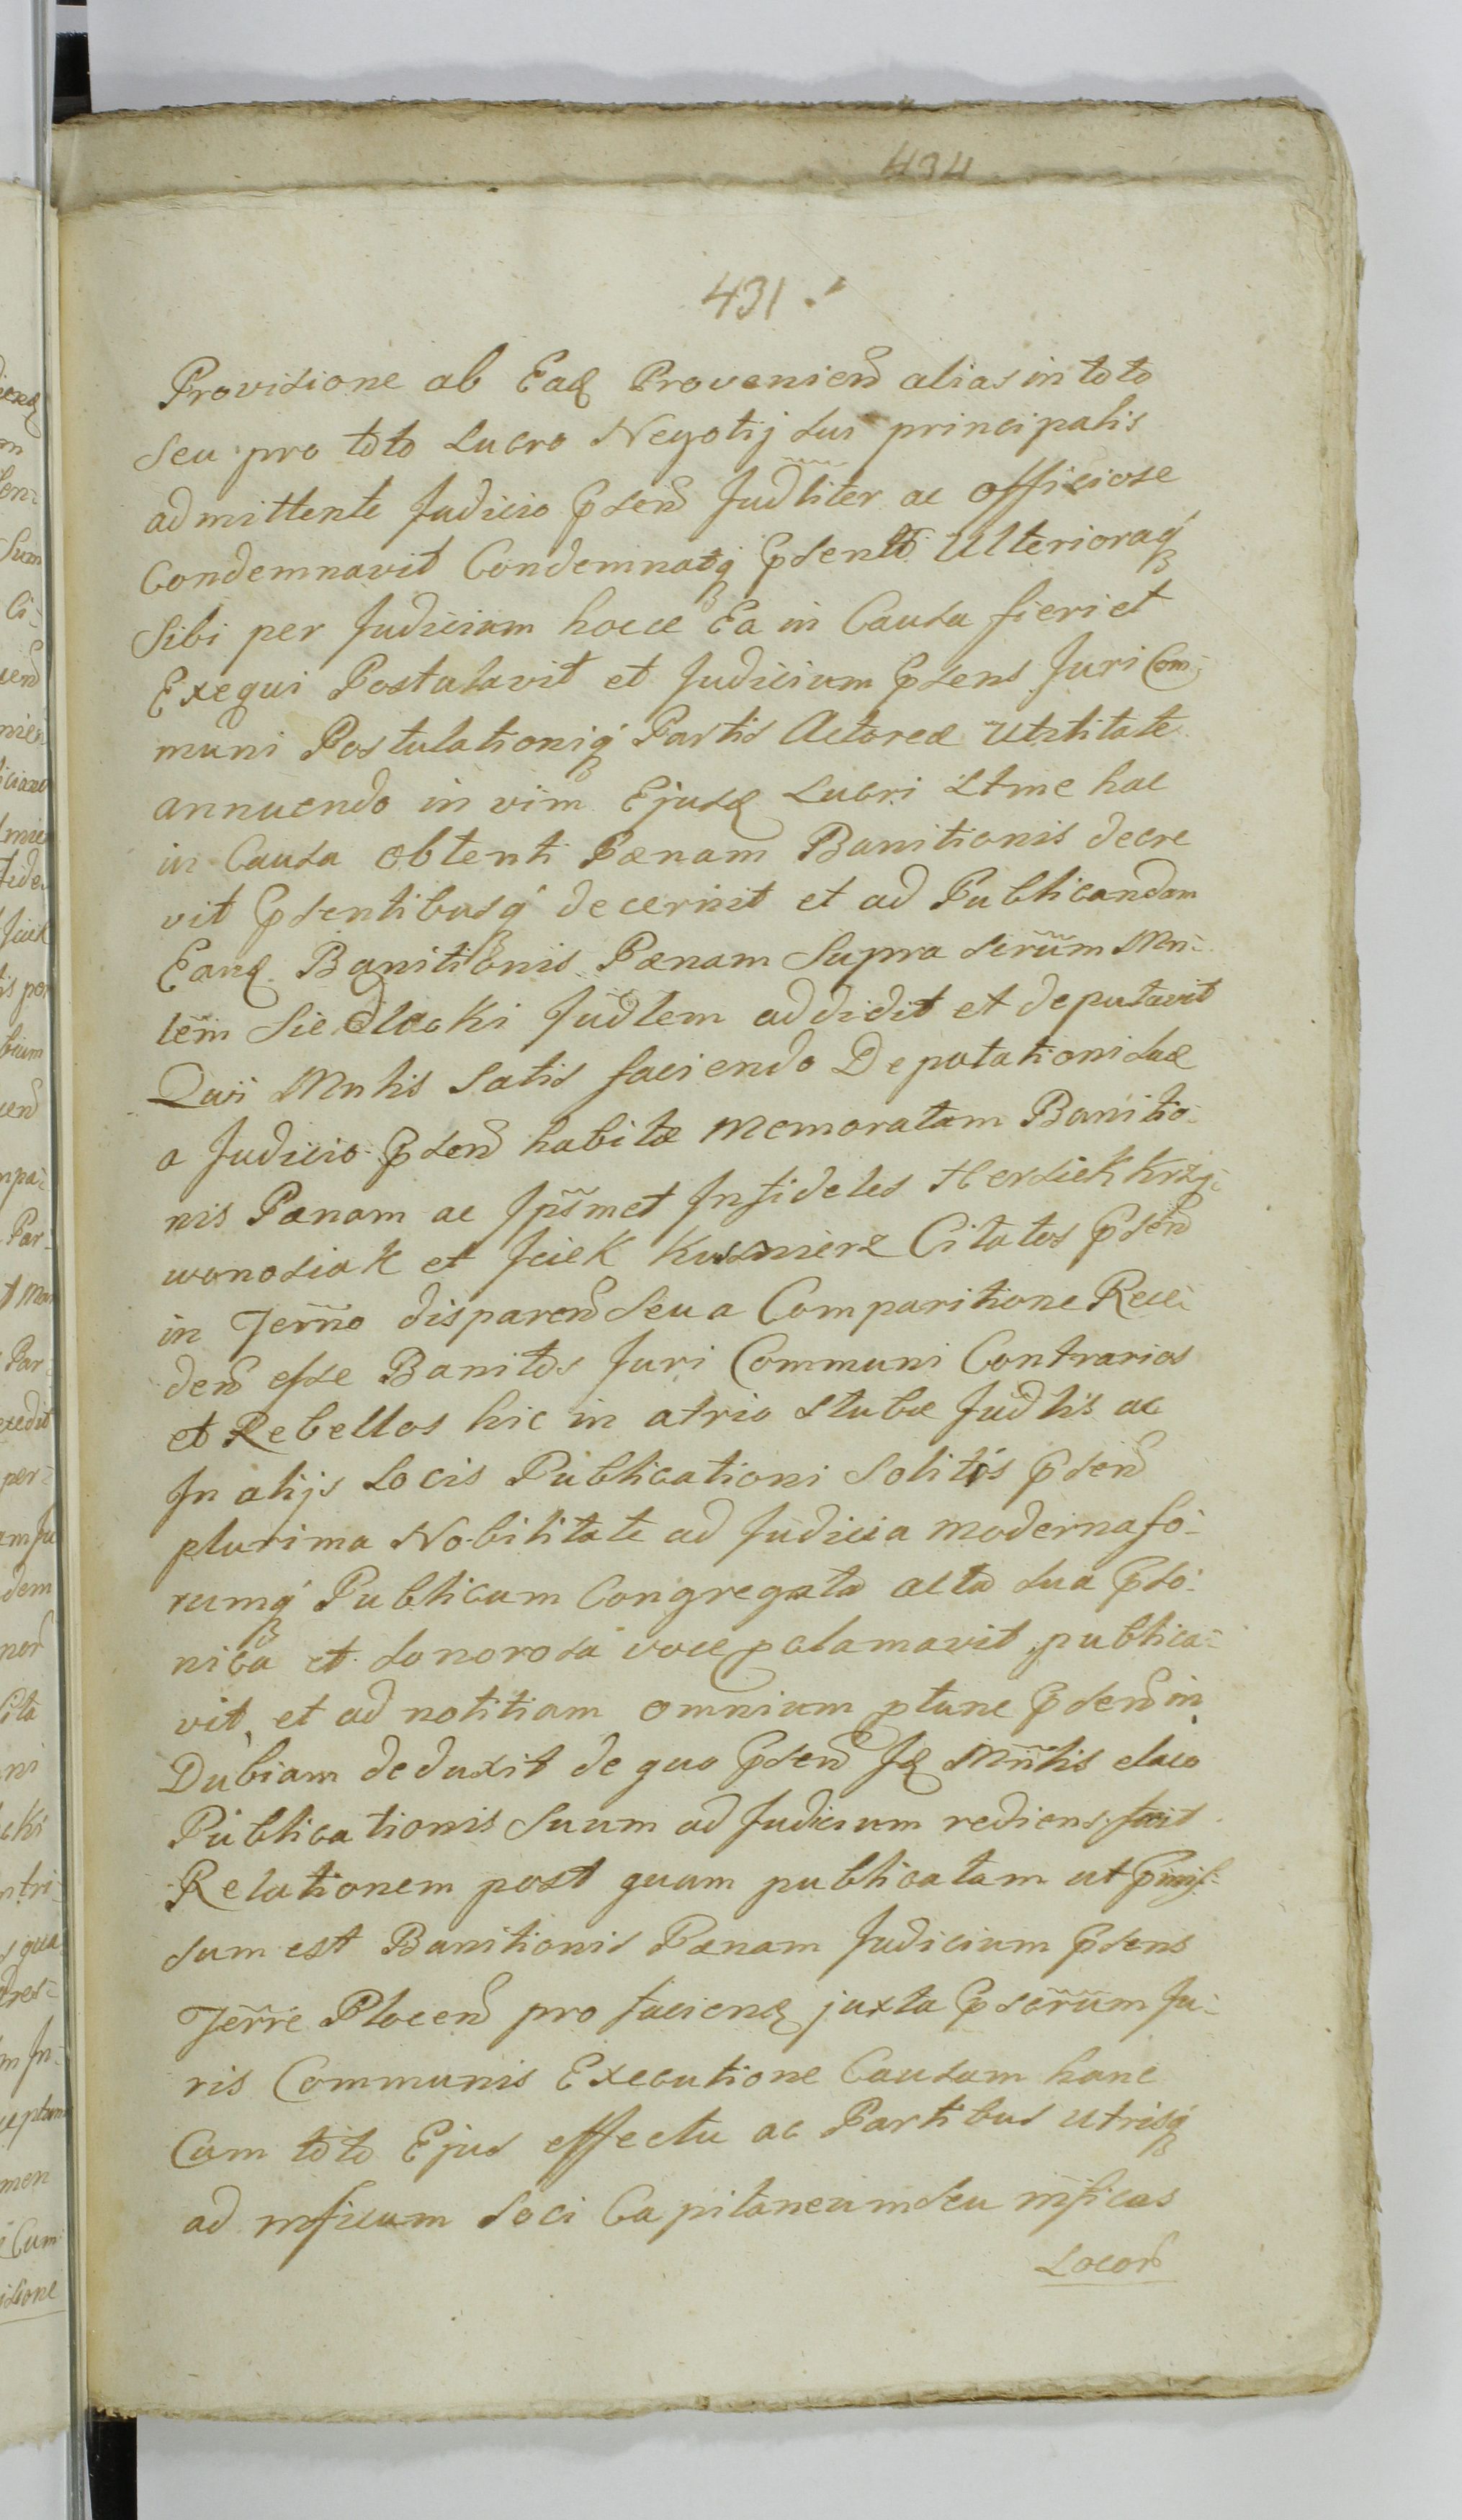 434
431.
Provisione ab Eaq Provenien alias in toto
seu pro toto Lucro Negotij sui principalis
admittente Judicio Psen Judliter ac officiose
Condemnavit Condemnatq Psentt Ulterioraq
Sibi per Judicium hocce Ea in Causa fieri et
Exequi Postulavit et Judicium Psens Juri Com-
muni Postulationiq Partis Actoreæ utztitate
annuendo in vim Ejusd Lucri Ltme hac
in Causa obtenti Pænam Banitionis decre
vit Psentibusq decernit et ad Publicandam
Eand Banitionis Pænam Supra scrum Mn-
lem Siedlecki Judlem addidit et deputavit
Qui Mnlis satis faciendo Deputationi suæ
a Judicio Psen habitæ memoratam Banitio-
nis Pænam ac Jpsmet Infideles Hersiek Krzy-
wonosiak et Jciek Kusznierz Citatos Psen
in Termo disparen seu a Comparitione Rece-
den esse Banitos Juri Communi Contrarios
et Rebellos hic in atrio stubæ Judlis ac
In alijs Locis Publicationi Solitis Psen
plurima Nobilitate ad Judicia moderna fo-
rumq Publicum Congregata alta sua Pso-
nica et sonorosa voce pclamavit publica-
vit, et ad notitiam omnium ptunc Psen in
Dubiam deduxit de quo Psen Jd Mnlis
Publicationis Suum ad Judicium rediens fecit
Relationem post quam publicatam ut Pmis-
sum est Banitionis Pænam Judicium Psens
Terre Plocen pro faciend juxta Pscrum Ju-
ris Communis Executione Causam hanc
Cum toto Ejus effectu ac Partibus utrisq
ad mficum Loci Capitaneum seu mficos
Locor